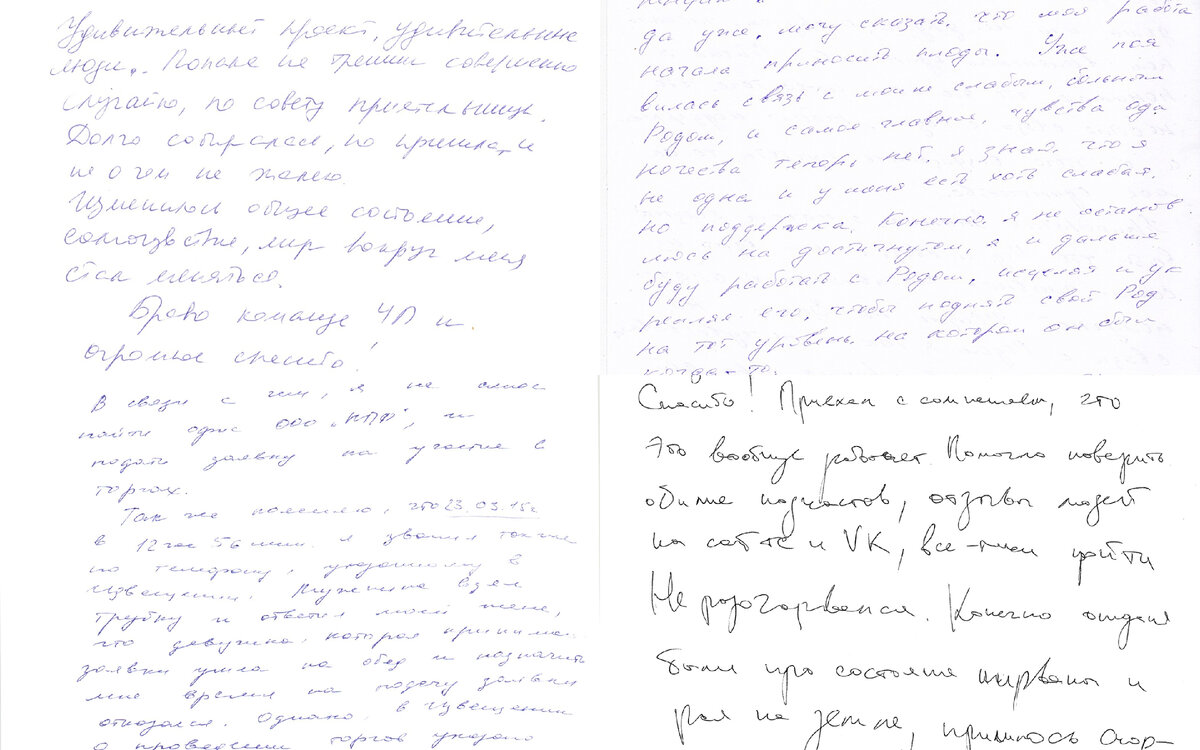 Удивительный проект, удивительные
люди. Попала на тренинг совершенно
случайно, по совету приятельницы.
Долго собиралась, но пришла, и
ни о чём не жалею.
Изменилось общее состояние,
самочувствие, мир вокруг меня
стал меняться.
Браво команде ЧП и
огромное спасибо!
В связи с чем, я не смог
найти офис ООО "НПФ", и
подать заявку на участие в
торгах.
Так же поясняю, что 23.03.15г
в 12 час 56 мин. я звонил также
по телефону, указанному в
извещении. Мужчина взял
трубку и ответил моей жене,
что девушка, которая принима
заявки ушла на обед и назначить
мне время на подачу заявки
отказался. Однако, в извещении
о проведении торгов указано
да уже, могу сказать, что моя работа
начала приносить плоды. Уже поя
вилась связь с моим слабым, больным
Родом, и самое главное, чувства оди
ночества теперь нет, я знаю, что я
не одна и у меня есть хоть слабая,
но поддержка. Конечно, я не останов
люсь на достигнутом, я и дальше
буду работать с Родом, исцеляя и ук
репляя его, чтобы поднять свой Род
на тот уровень на котором он был
когда-то.
Спасибо! Приехал с сомнением, что
это вообще работает. Помогло поверить
обилие подкастов, отзывы людей
на сайте и VK, все-таки прийти
Не разочаровался. Конечно ожидания
были про состояние нирваны и
рая на земле, пришлось скор-